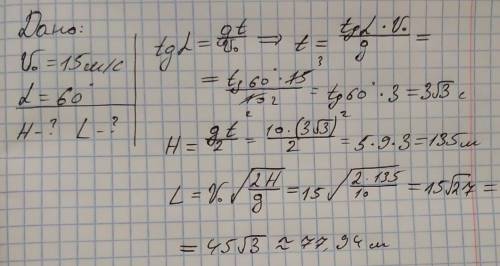 Дано:
V₀ = 15 м/с
L = 60°
H - ? L - ?
tg L = gt/V₀ ⇒ t = tg L · V₀/g =
= tg 60° · 15/10 2 = tg 60° · 3 = 3√3 c
3
H = gt²/2 = 10 · (3√3)²/2 = 5 · 9 · 3 = 135 м
L = V₀ √2H/g = 15 √2 · 135/10 = 15√27 =
= 45√3 ≈ 77,94 м